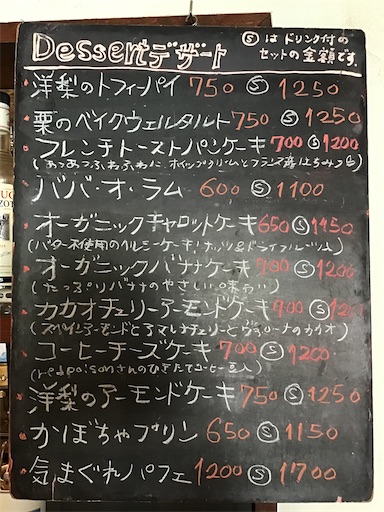 Dessert デザート
Ⓢ は ドリンク付の
セットの金額です。
洋梨のトフィーパイ 750 Ⓢ 1250
栗のベイクウェルタルト 750 Ⓢ 1250
フレンチトーストパンケーキ 700 Ⓢ 1200
(あつあつふわふわに ホイップクリームとフランス産はちみつ)
ババ・オ・ラム 600 Ⓢ 1100
オーガニックキャロットケーキ 650 Ⓢ 1150
(バター不使用のヘルシーケーキ!ナッツ&ドライフルーツ入)
オーガニックバナナケーキ 700 Ⓢ 1200
(たっぷりバナナのやさしい味わい)
カカオチェリーアーモンドケーキ 700 Ⓢ 1200
(スペインアーモンドとマレナチェリーとヴァローナのカカオ)
コーヒーチーズケーキ 700 Ⓢ 1200
(redpoisonさんのひきたてコーヒー豆入)
洋梨のアーモンドケーキ 750 Ⓢ 1250
かぼちゃプリン 650 Ⓢ 1150
気まぐれパフェ 1200 Ⓢ 1700